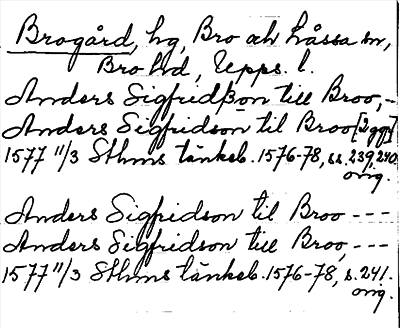 Brogård, hg, Bro ah Låssa sn,
Bro hd, Upps. l.
Anders Sigfridßon till Broo,-
Anders Sigfridson til Broo [2 ggr]
1577 11/3 Sthms tänkeb. 1576-78, ss. 239, 240
orig.
Anders Sigfridson til Broo ---
Anders Sigfridson till Broo, ---
1577 11/3 Sthms tänkeb. 1576-78, s. 241.
orig.